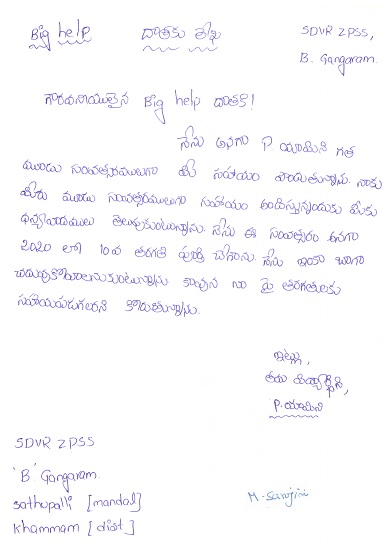 Big help దాతకు లేఖ SDVR ZPSS,
B. Gangaram.
గౌరవనీయులైన Big help దాతకి!
నేను అనగా P యామిని గత
మూడు సంవత్సరములుగా మీ సహాయం పొందుతున్నాను. నాకు
మీరు మూడు సంవత్సరములుగా సహాయం అందిస్తున్నందుకు మీకు
ధన్యవాదములు తెలుపుకుంటున్నాను. నేను ఈ సంవత్సరం అనగా
2020 లో 10వ తరగతి పూర్తి చేశాను. నేను ఇంకా బాగా
చదువుకోవాలనుకుంటున్నాను. కావున నా పై తరగతులకు
సహాయపడగలరని కోరుతున్నాను.
ఇట్లు,
తమ విద్యార్థిని,
P. యామిని
SDVR ZPSS
'B' Gangaram.
sathupalli [mandal]
khammam [dist]
M. Sarojini